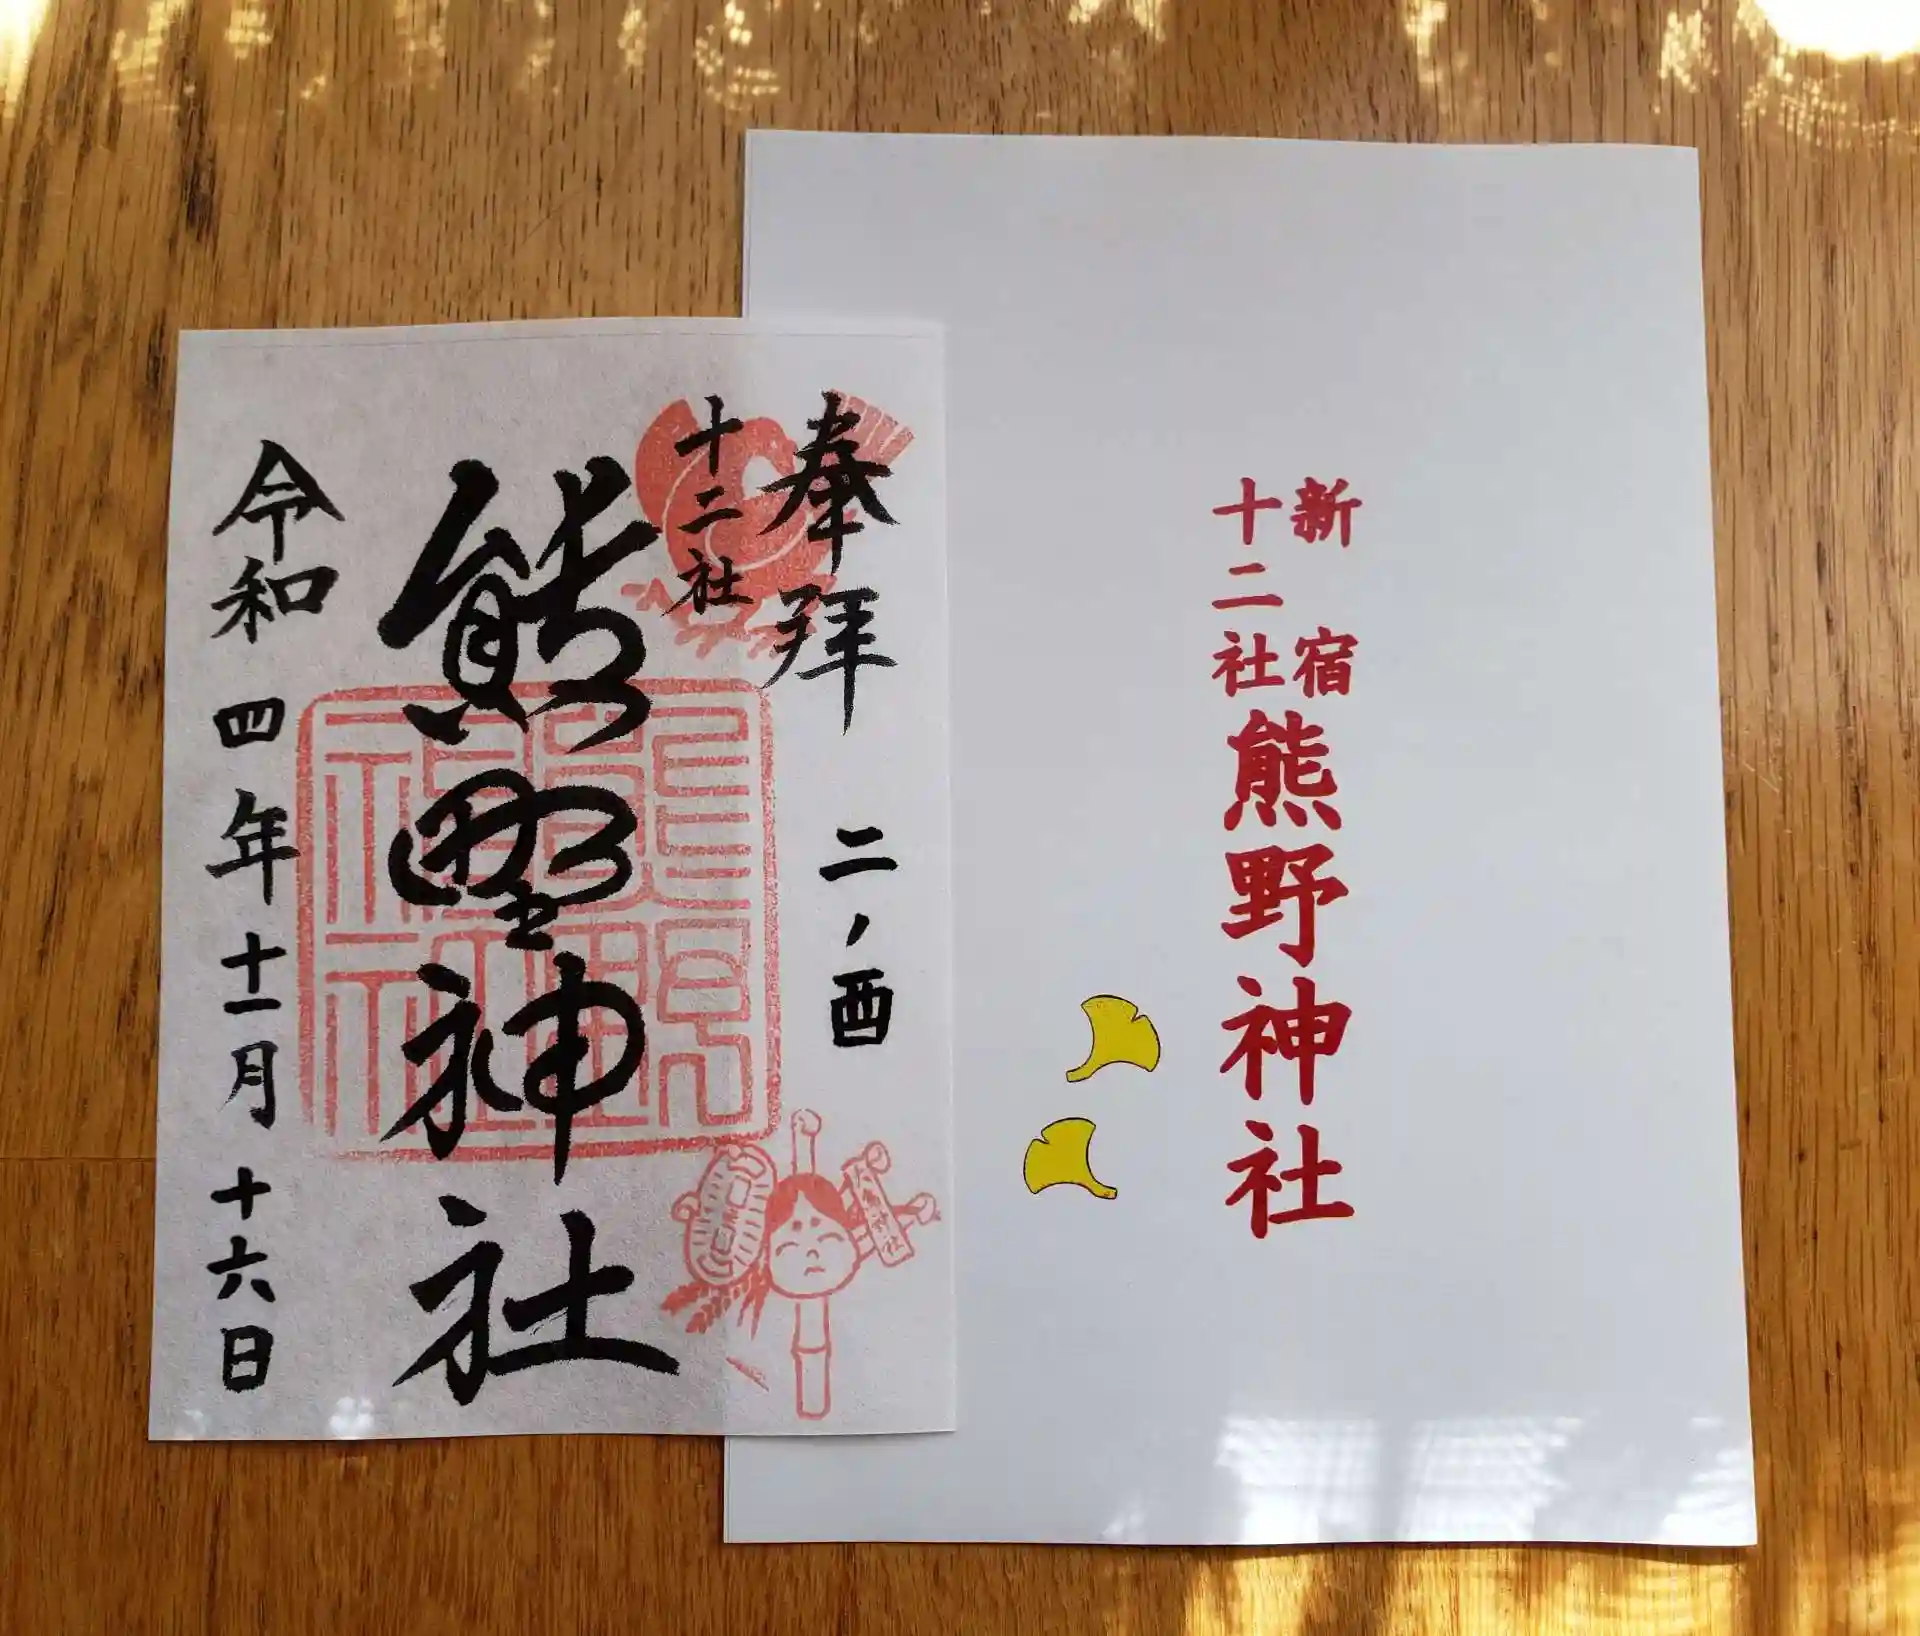 奉拝 二ノ酉
十二社
熊野神社
令和四年十一月十六日
新宿
十二社
熊野神社